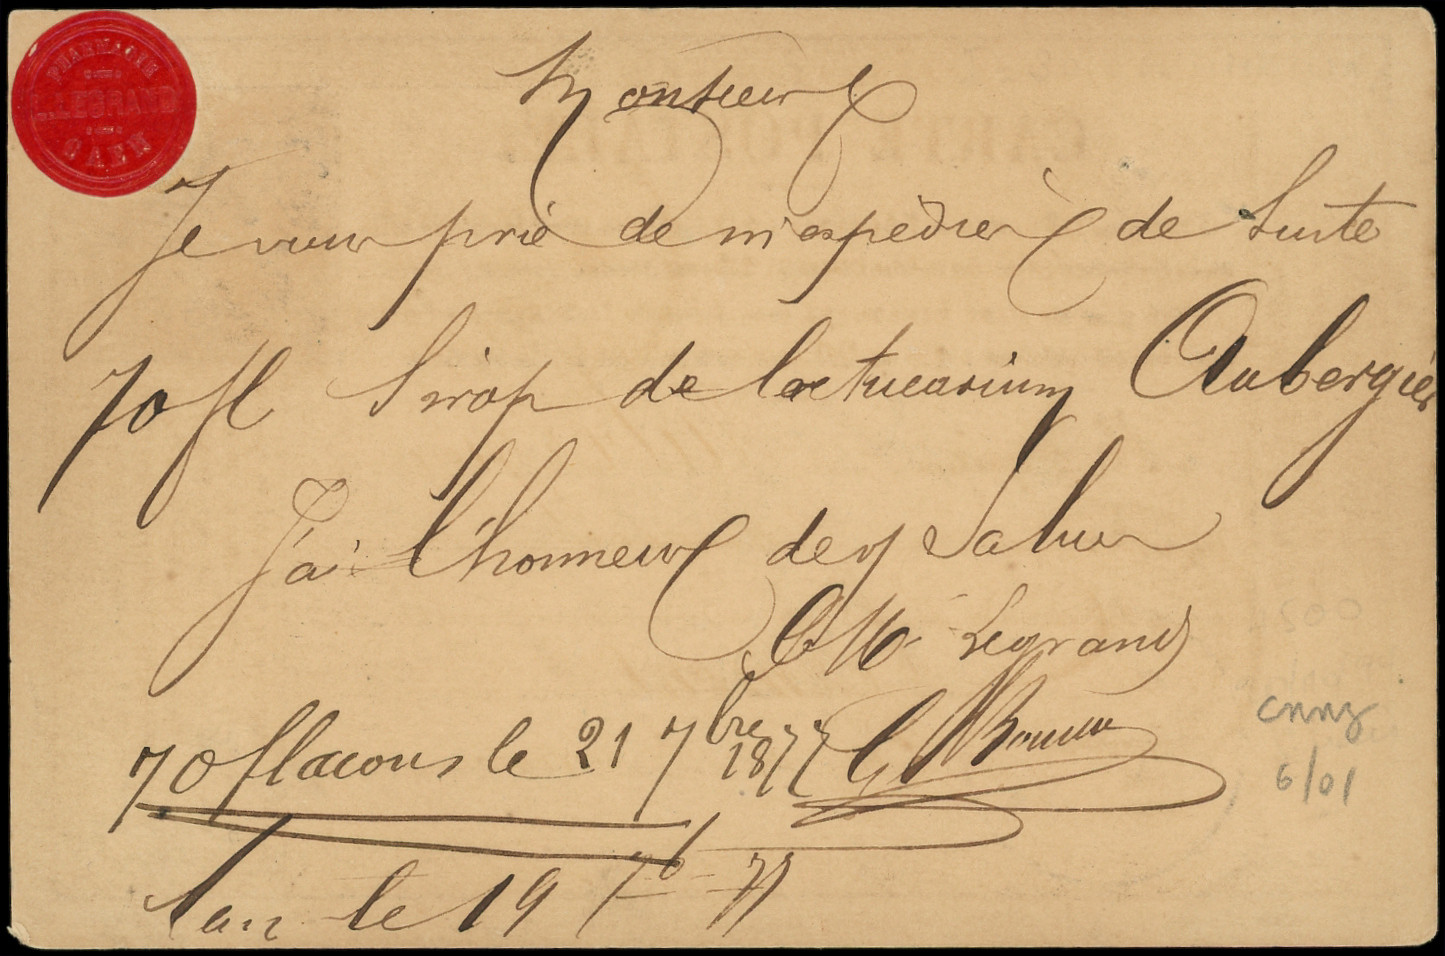 PHARMACIE
L. LEGRAND
CAEN
Monsieur
Je vous prie de m'expédier de suite
70 fl Sirop de lactucarium Aubergier
J'ai l'honneur de v saluer
Legrand
70 flacons le 21 7bre 1877
le 19 7b 77
cnnz
6/01